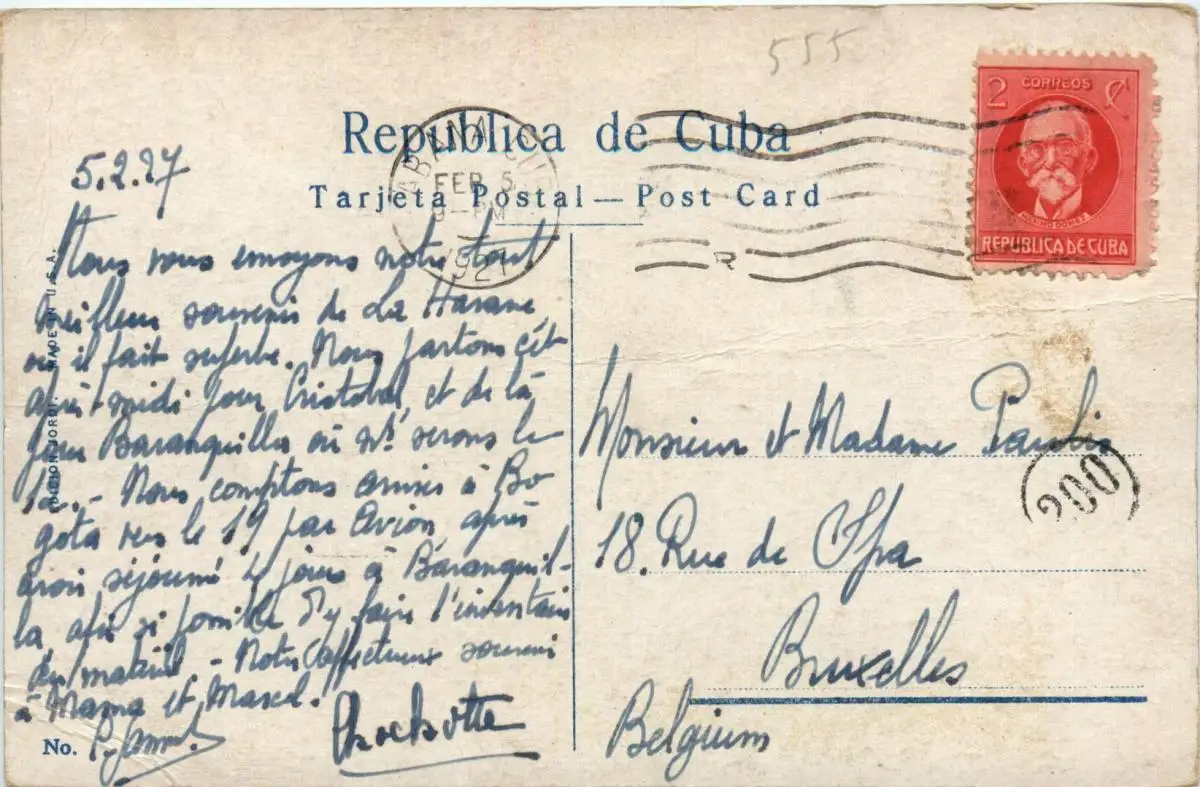 555
2 CORREOS ¢
MAXIMO GOMEZ
REPUBLICA DE CUBA
Republica de Cuba
Tarjeta Postal — Post Card
HABANA, CUBA
FEB 5
9 - PM
1927
R
EDICION JORDI. MADE IN U.S.A.
5.2.27
Nous vous envoyons notre tout
meilleur souvenir de La Havane
ou il fait superbe. Nous partons cet
après-midi pour Cristobal, et de là
pour Baranquilla où ns. serons le
12. - Nous comptons arriver à Bo
gota vers le 19 par Avion, après
avoir séjourné 4 jours à Baranquil-
la, afin si possible d'y faire l'inventaire
du matériel. - Notre affectueux souvenir
à Mama et Marcel.
Chochotte
No.
Monsieur et Madame Paulis
200
18. Rue de Spa
Bruxelles
Belgium